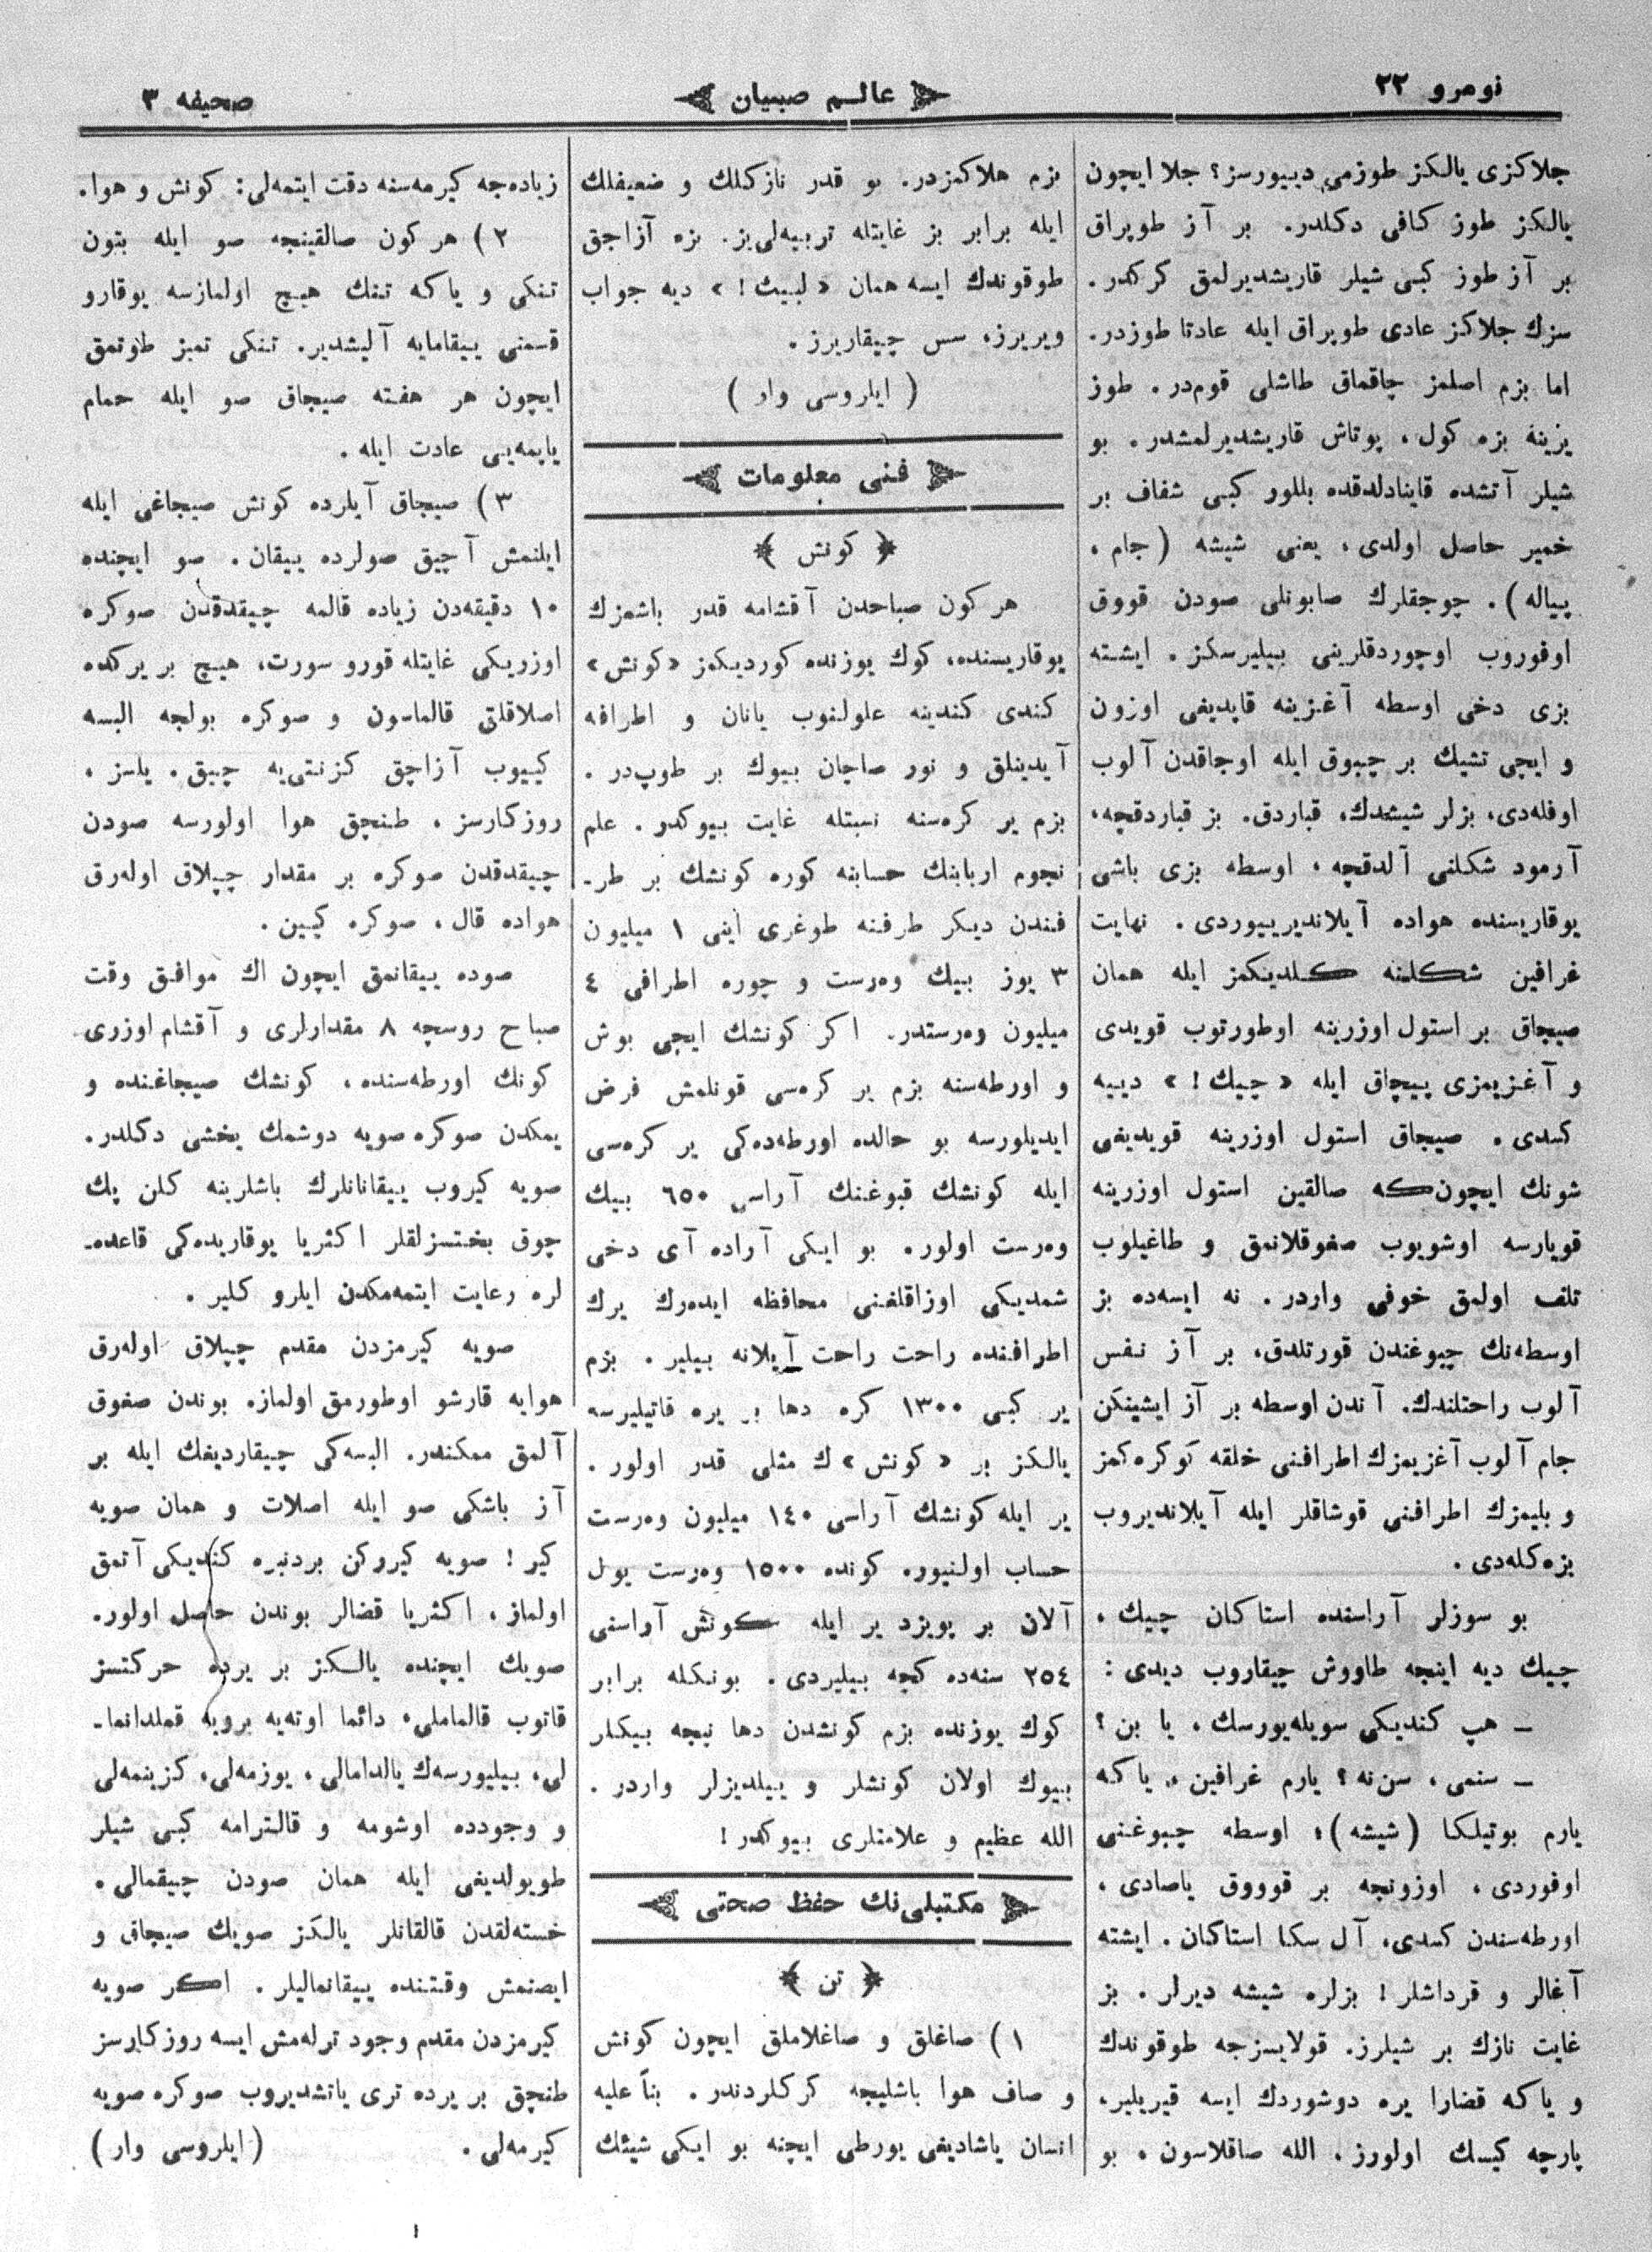 نومرو ٢٢
عالم صبيان
صحيفه ٣
جلاكزى يالكز طوزمى ديبيورسز؟ جلا ايچون
يالكز طوز كافى دكلدر. بر آز طوپراق
بر آز طوز كبى شيلر قاريشديرلمق كركدر.
سزك جلاكز عادى طوپراق ايله عادتا طوزدر.
اما بزم اصلمز چاقماق طاشلى قوم‌در. طوز
يزينه بزه كول، پوتاش قاريشديرلمشدر. بو
شيلر آتشده قاينادلدقده بللور كبى شفاف بر
خمير حاصل اولدى، يعنى شيشه (جام،
پياله). چوجقلرك صابونلى صودن قووق
اوفوروب اوچوردقلرينى بيليرسكز. ايشته
بزى دخى اوسطه آغزينه قاپديغى اوزون
و ايچى تشيك بر چبوق ايله اوجاقدن آلوب
اوفله‌دى، بزلر شيشدك، قباردق. بز قباردقچه،
آرمود شكلنى آلدقچه، اوسطه بزى باشى
يوقاريسنده هواده آيلانديرييوردى. نهايت
غرافين شكلنه كلديكمز ايله همان
صيجاق بر استول اوزرينه اوطورتوب قويدى
و آغزيمزى پيچاق ايله «چيك!» دييه
كسدى. صيجاق استول اوزرينه قويديغى
شونك ايچون‌كه صالقين استول اوزرينه
قويارسه اوشويوب صغوقلانمق و طاغيلوب
تلف اولمق خوفى واردر. نه ايسه‌ده بز
اوسطه‌نك چبوغندن قورتلدق، بر آز نفس
آلوب راحتلندك. آندن اوسطه بر آز ايشينكن
جام آلوب آغزيمزك اطرافنى خلقه كوكره‌كمز
و بليمزك اطرافنى قوشاقلر ايله آيلانديروب
بزه‌كله‌دى.
بو سوزلر آراسنده استاكان چيك،
چيك ديه اينچه طاووش چيقاروب ديدى:
ــ هپ كنديكى سويله‌يورسك، يا بن؟
ــ سنمى، سن نه؟ يارم غرافين، ياكه
يارم بوتيلكا (شيشه)؛ اوسطه چبوغنى
اوفوردى، اوزونچه بر قوووق ياصادى،
اورطه‌سندن كسدى، آل سكا استاكان. ايشته
آغالر و قرداشلر! بزلره شيشه ديرلر. بز
غايت نازك بر شيلرز. قولايسزجه طوقوندك
و ياكه قضارا يره دوشوردك ايسه قيريلير،
پارچه كيسك اولورز. الله صاقلاسون، بو
بزم هلاكمزدر. بو قدر نازكلك و ضعيفلك
ايله برابر بز غايتله تربيه‌لى‌يز. بزه آزاجق
طوقوندك ايسه همان «لبيك!» ديه جواب
ويريرز، سس چيقاريرز.
(ايلروسى وار)
فنى معلومات
كونش
هركون صباحدن آقشامه قدر باشمزك
يوقاريسنده، كوك يوزنده كورديكمز «كونش»
كندى كندينه علولنوب يانان و اطرافه
آيدينلق و نور صاچان بيوك بر طوپ‌در.
بزم ير كره‌سنه نسبتله غايت بيوكدر. علم
نجوم اربابنك حسابنه كوره كونشك بر طر-
فندن ديكر طرفنه طوغرى اينى ١ ميليون
٣ يوز بيك وه‌رست و چوره اطرافى ٤
ميليون وه‌رستدر. اكر كونشك ايچى بوش
و اورطه‌سنه بزم ير كره‌سى قونلمش فرض
ايديلورسه بو حالده اورطه‌ده‌كى ير كره‌سى
ايله كونشك قبوغنك آراسى ٦٥٠ بيك
وه‌رست اولور. بو ايكى آراده آى دخى
شمديكى اوزاقلغنى محافظه ايده‌رك يرك
اطرافنده راحت راحت آيلانه بيلير. بزم
ير كبى ١٣٠٠ كره دها بر يره قاتيليرسه
يالكز بر «كونش» ك مثلى قدر اولور.
ير ايله كونشك آراسى ١٤٠ ميليون وه‌رست
حساب اولنيور. كونده ١٥٠٠ وه‌رست يول
آلان بر پويزد ير ايله كونش آراسنى
٢٥٤ سنه‌ده كچه بيليردى. بونكله برابر
كوك يوزنده بزم كونشدن دها نيچه بيكلر
بيوك اولان كونشلر و ييلديزلر واردر.
الله عظيم و علامتلرى بيوكدر!
مكتبلى‌نك حفظ صحتى
تن
١) صاغلق و صاغلاملق ايچون كونش
و صاف هوا باشليجه كركلردندر. بناً عليه
انسان ياشاديغى يورطى ايچنه بو ايكى شيئك
زياده‌جه كيرمه‌سنه دقت ايتمه‌لى: كونش و هوا.
٢) هركون صالقينجه صو ايله بتون
تنكى و ياكه تنك هيچ اولمازسه يوقارو
قسمنى ييقامايه آليشدير. تنكى تميز طوتمق
ايچون هر هفته صيجاق صو ايله حمام
ياپمه‌يى عادت ايله.
٣) صيجاق آيلرده كونش صيجاغى ايله
ايلنمش آچيق صولرده ييقان. صو ايچنده
١٠ دقيقه‌دن زياده قالمه چيقدقدن صوكره
اوزريكى غايتله قورو سورت، هيچ بر يركده
اصلاقلق قالماسون و صوكره بولجه البسه
كييوب آزاچق كزنتى‌يه چيق. يلسز،
روزكارسز، طنچق هوا اولورسه صودن
چيقدقدن صوكره بر مقدار چپلاق اوله‌رق
هواده قال، صوكره كيين.
صوده ييقانمق ايچون اك موافق وقت
صباح روسچه ٨ مقدارلرى و آقشام اوزرى
كونك اورطه‌سنده، كونشك صيجاغنده و
يمكدن صوكره صويه دوشمك يخشى دكلدر.
صويه كيروب ييقانانلرك باشلرينه كلن پك
چوق بختسزلقلر اكثريا يوقاريده‌كى قاعده-
لره رعايت ايتمه‌مكدن ايلرو كلير.
صويه كيرمزدن مقدم چپلاق اوله‌رق
هوايه قارشو اوطورمق اولماز. بوندن صغوق
آلمق ممكندر. البسه‌كى چيقارديغك ايله بر
آز باشكى صو ايله اصلات و همان صويه
كير! صويه كيروركن بردنبره كنديكى آتمق
اولماز، اكثريا قضالر بوندن حاصل اولور.
صويك ايچنده يالكز بر يرده حركتسز
قاتوب قالماملى، دائما اوته‌يه برويه قملدانما-
لى، بيليورسه‌ك يالدامالى، يوزمه‌لى، كزينمه‌لى
و وجودده اوشومه و قالترامه كبى شيلر
طويولديغى ايله همان صودن چيقمالى.
خسته‌لقدن قالقانلر يالكز صويك صيجاق و
ايصنمش وقتنده ييقانماليلر. اكر صويه
كيرمزدن مقدم وجود ترله‌مش ايسه روزكارسز
طنچق بر يرده ترى ياتشديروب صوكره صويه
كيرمه‌لى. (ايلروسى وار)